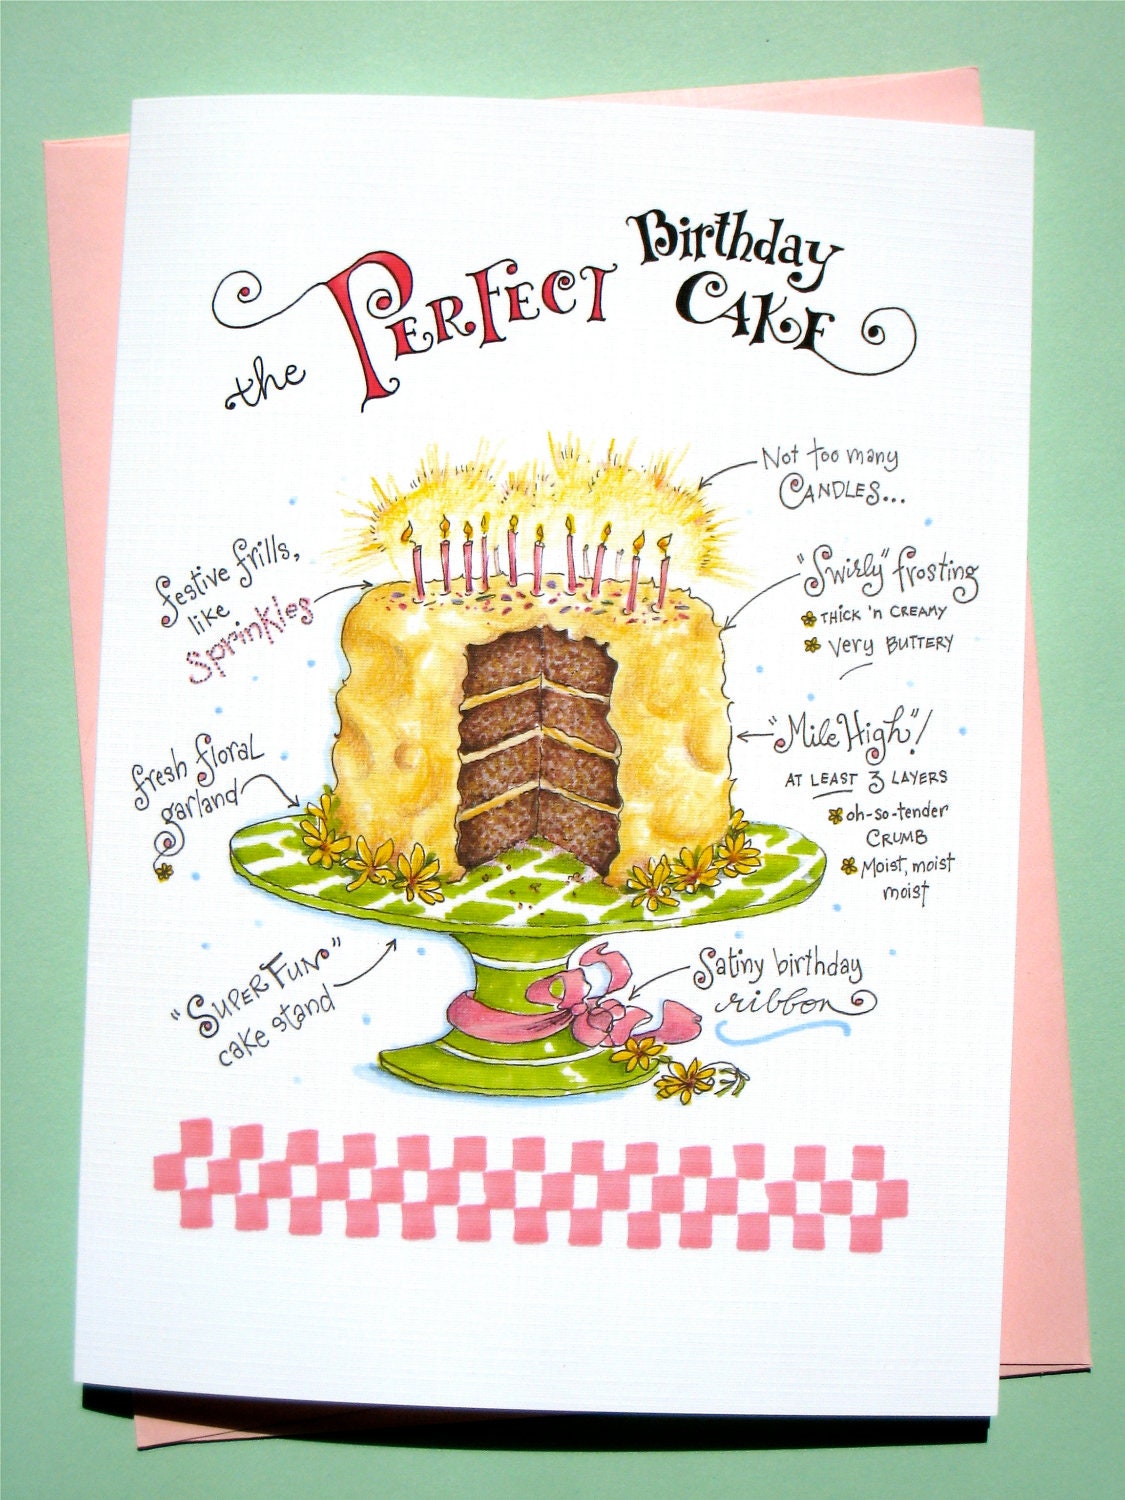 the PERFECT
Birthday
CAKE
Not too many
CANDLES...
festive frills,
like
sprinkles
"Swirly" frosting
THICK 'n CREAMY
Very BUTTERY
"Mile High"!
AT LEAST 3 LAYERS
oh-so-tender
CRUMB
Moist, moist
moist
fresh floral
garland
"SUPER FUN"
cake stand
Satiny birthday
ribbon